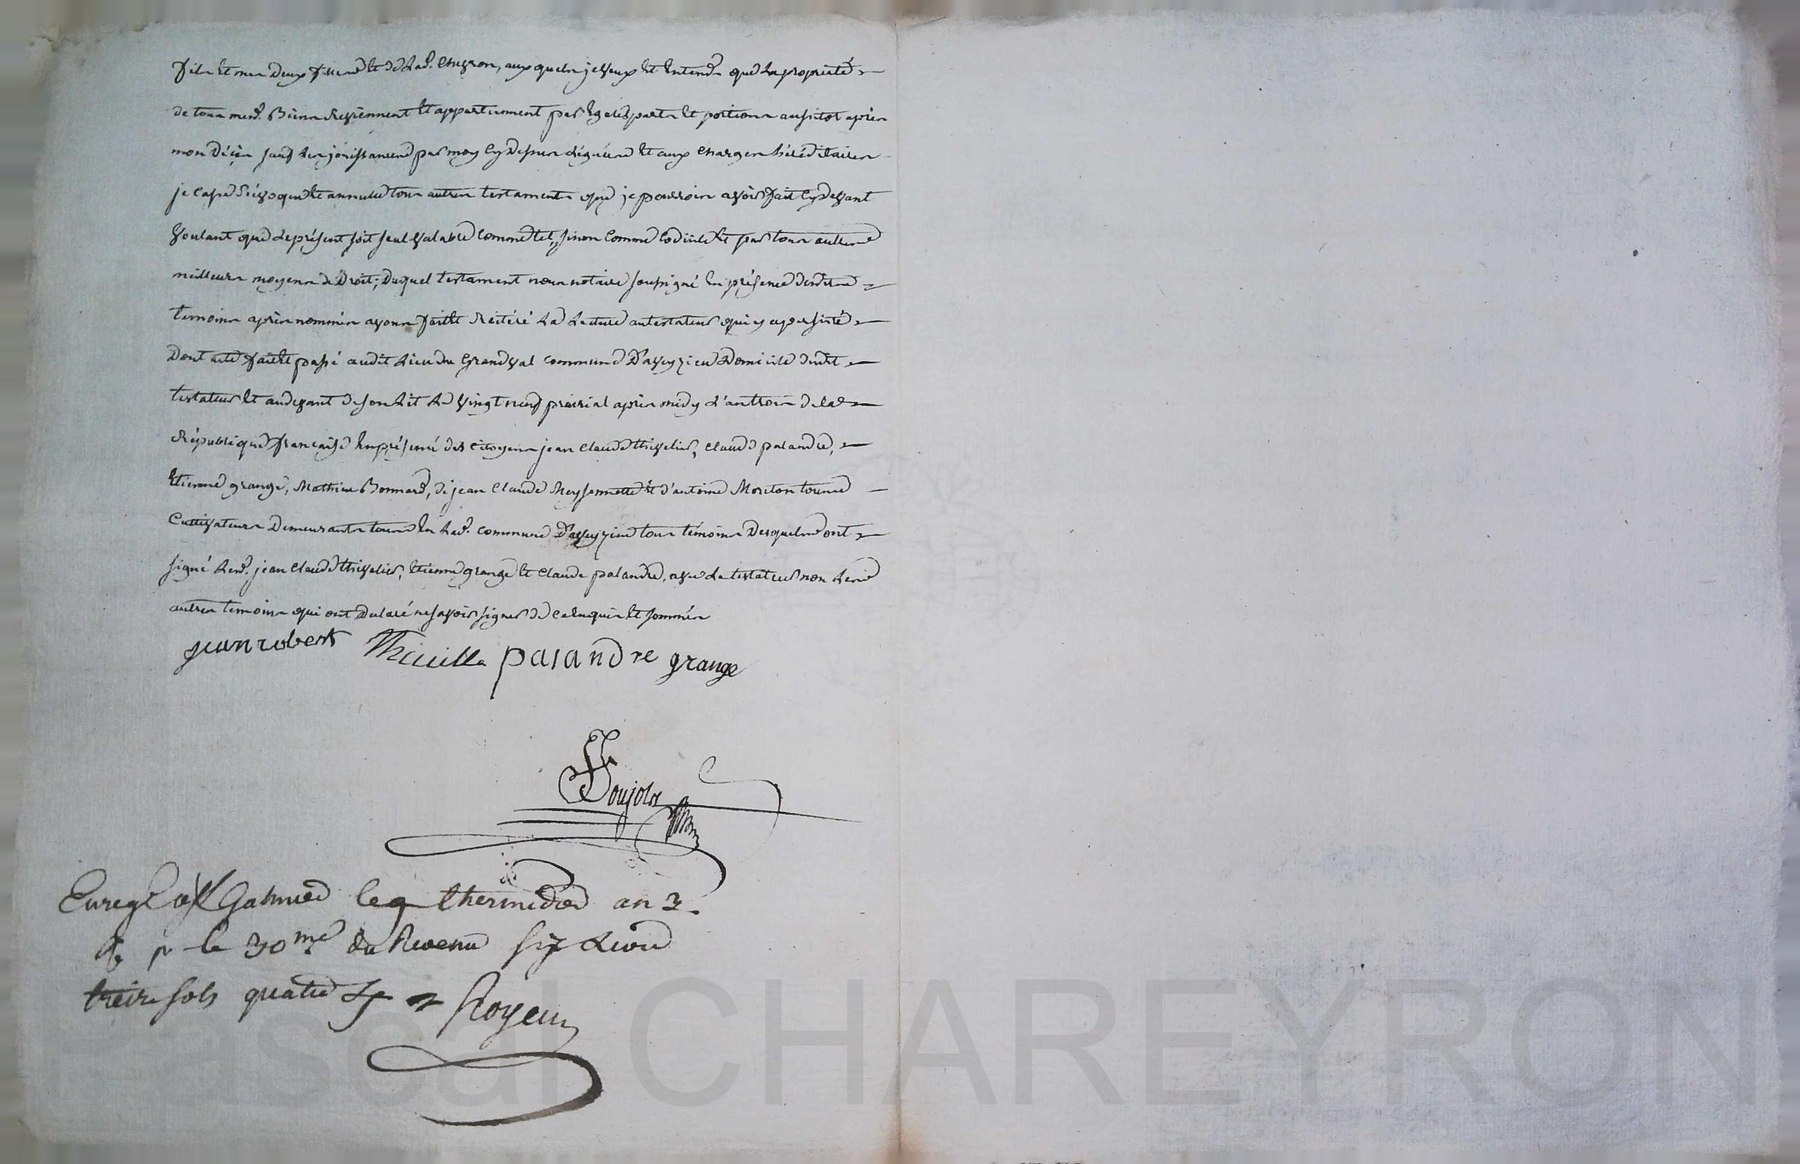 fils et mes deux frere et de lad. Cheyron, aux quels je veux et entend que la propriété
de tous mesd. Biens reviennent et appartiennent par egales parts et portions aussitot après
mon décès sauf les jouissances par moy cy dessus léguées et aux charges héréditaires
je casse révoque et annulle tous autres testaments que je pourrois avoir fait cy devant
voulant que le présent soit seul valable comme tel, sinon comme codicile et par tous autres
meilleurs moyens de Droit; Duquel testament nous notaire soussigné en présence desdits
temoins après nommés avons fait et réitéré la lecture au testateur qui y a persisté
Dont acte fait et passé audit lieu du Grandval commune D'aveyzieu Domicile dudit
testateur et au devant de son lit le vingt neuf prairial après midy l'an trois de la
République française en présence des citoyens jean claude thivelier, claude palandre,
Etienne grange, Mathieu Bonnard, de jean claude Meyssonnette et d'antoine Moreton tous
Cultivateurs Demeurants tous en lad. commune D'aveyzieu tous témoins Desquels ont
signé lesd. jean claude thivelier, Etienne grange et claude palandre, avec le testateur non les
autres temoins qui ont declaré ne savoir signer de ce enquis et sommés
jean robert palandre grange
Poujols
Enreg. à Galmier le 9 thermidor an 3.
R p le 30me du Revenu six livres
treize sols quatre
Royer
Pascal CHAREYRON